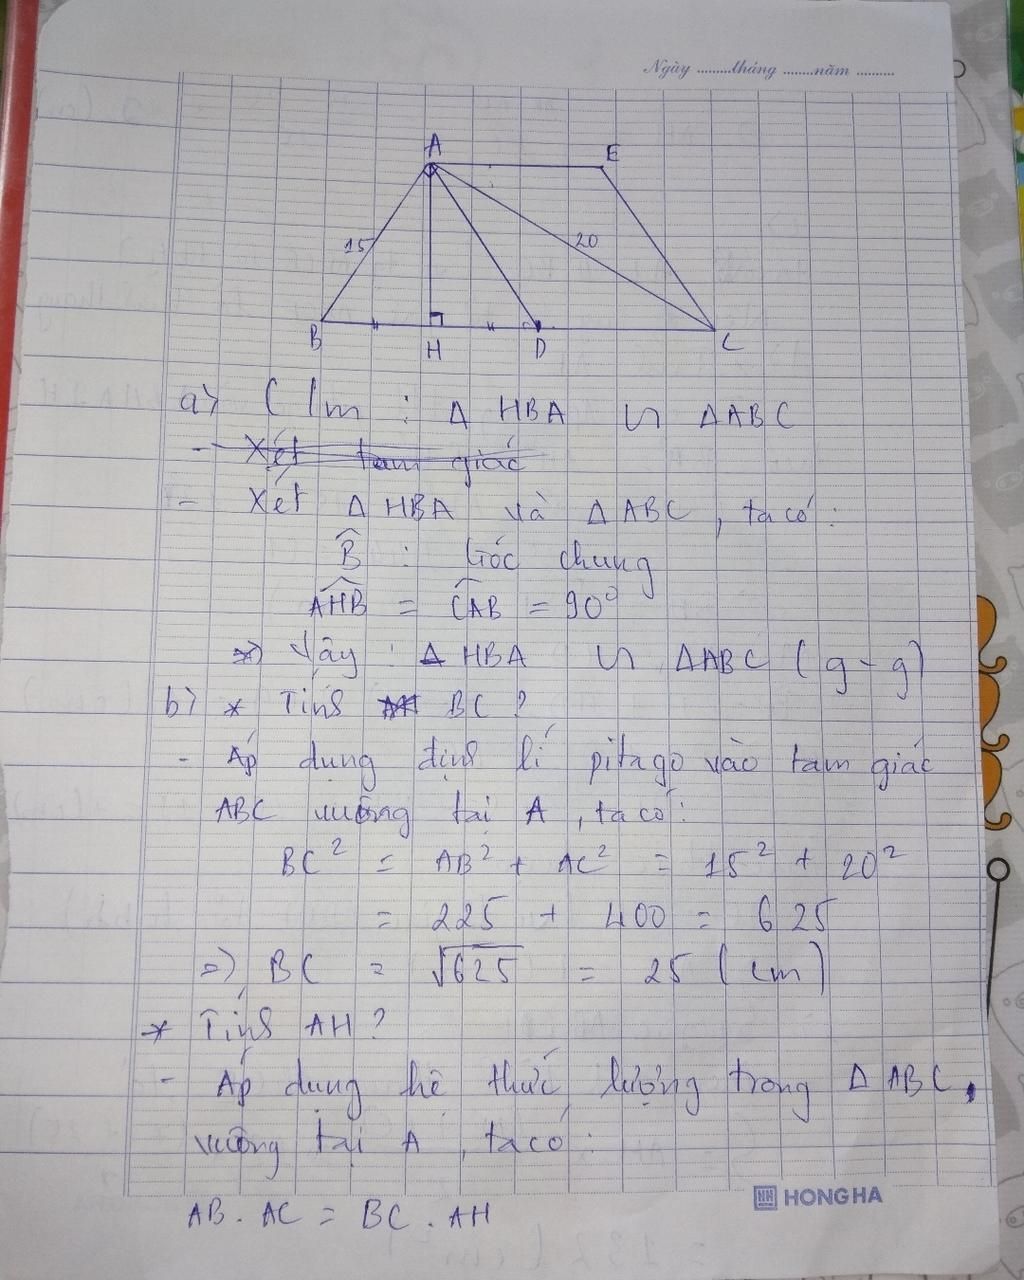 Ngày ..........tháng ........năm ..........
A
E
15
20
B
H
D
C
a) C/m : Δ HBA ᔕ ΔABC
- Xét tam giác
- Xét Δ HBA và Δ ABC , ta có :
B̂ : Góc chung
AHB = CAB = 90°
=> Vậy : Δ HBA ᔕ ΔABC ( g - g )
b) * Tính BC ?
- Áp dụng định lí pitago vào tam giác
ABC vuông tại A , ta có :
BC² = AB² + AC² = 15² + 20²
= 225 + 400 = 625
=> BC = √625 = 25 ( cm )
* Tính AH ?
- Áp dụng hệ thức lượng trong Δ ABC ,
vuông tại A , ta có :
HONG HA
AB . AC = BC . AH